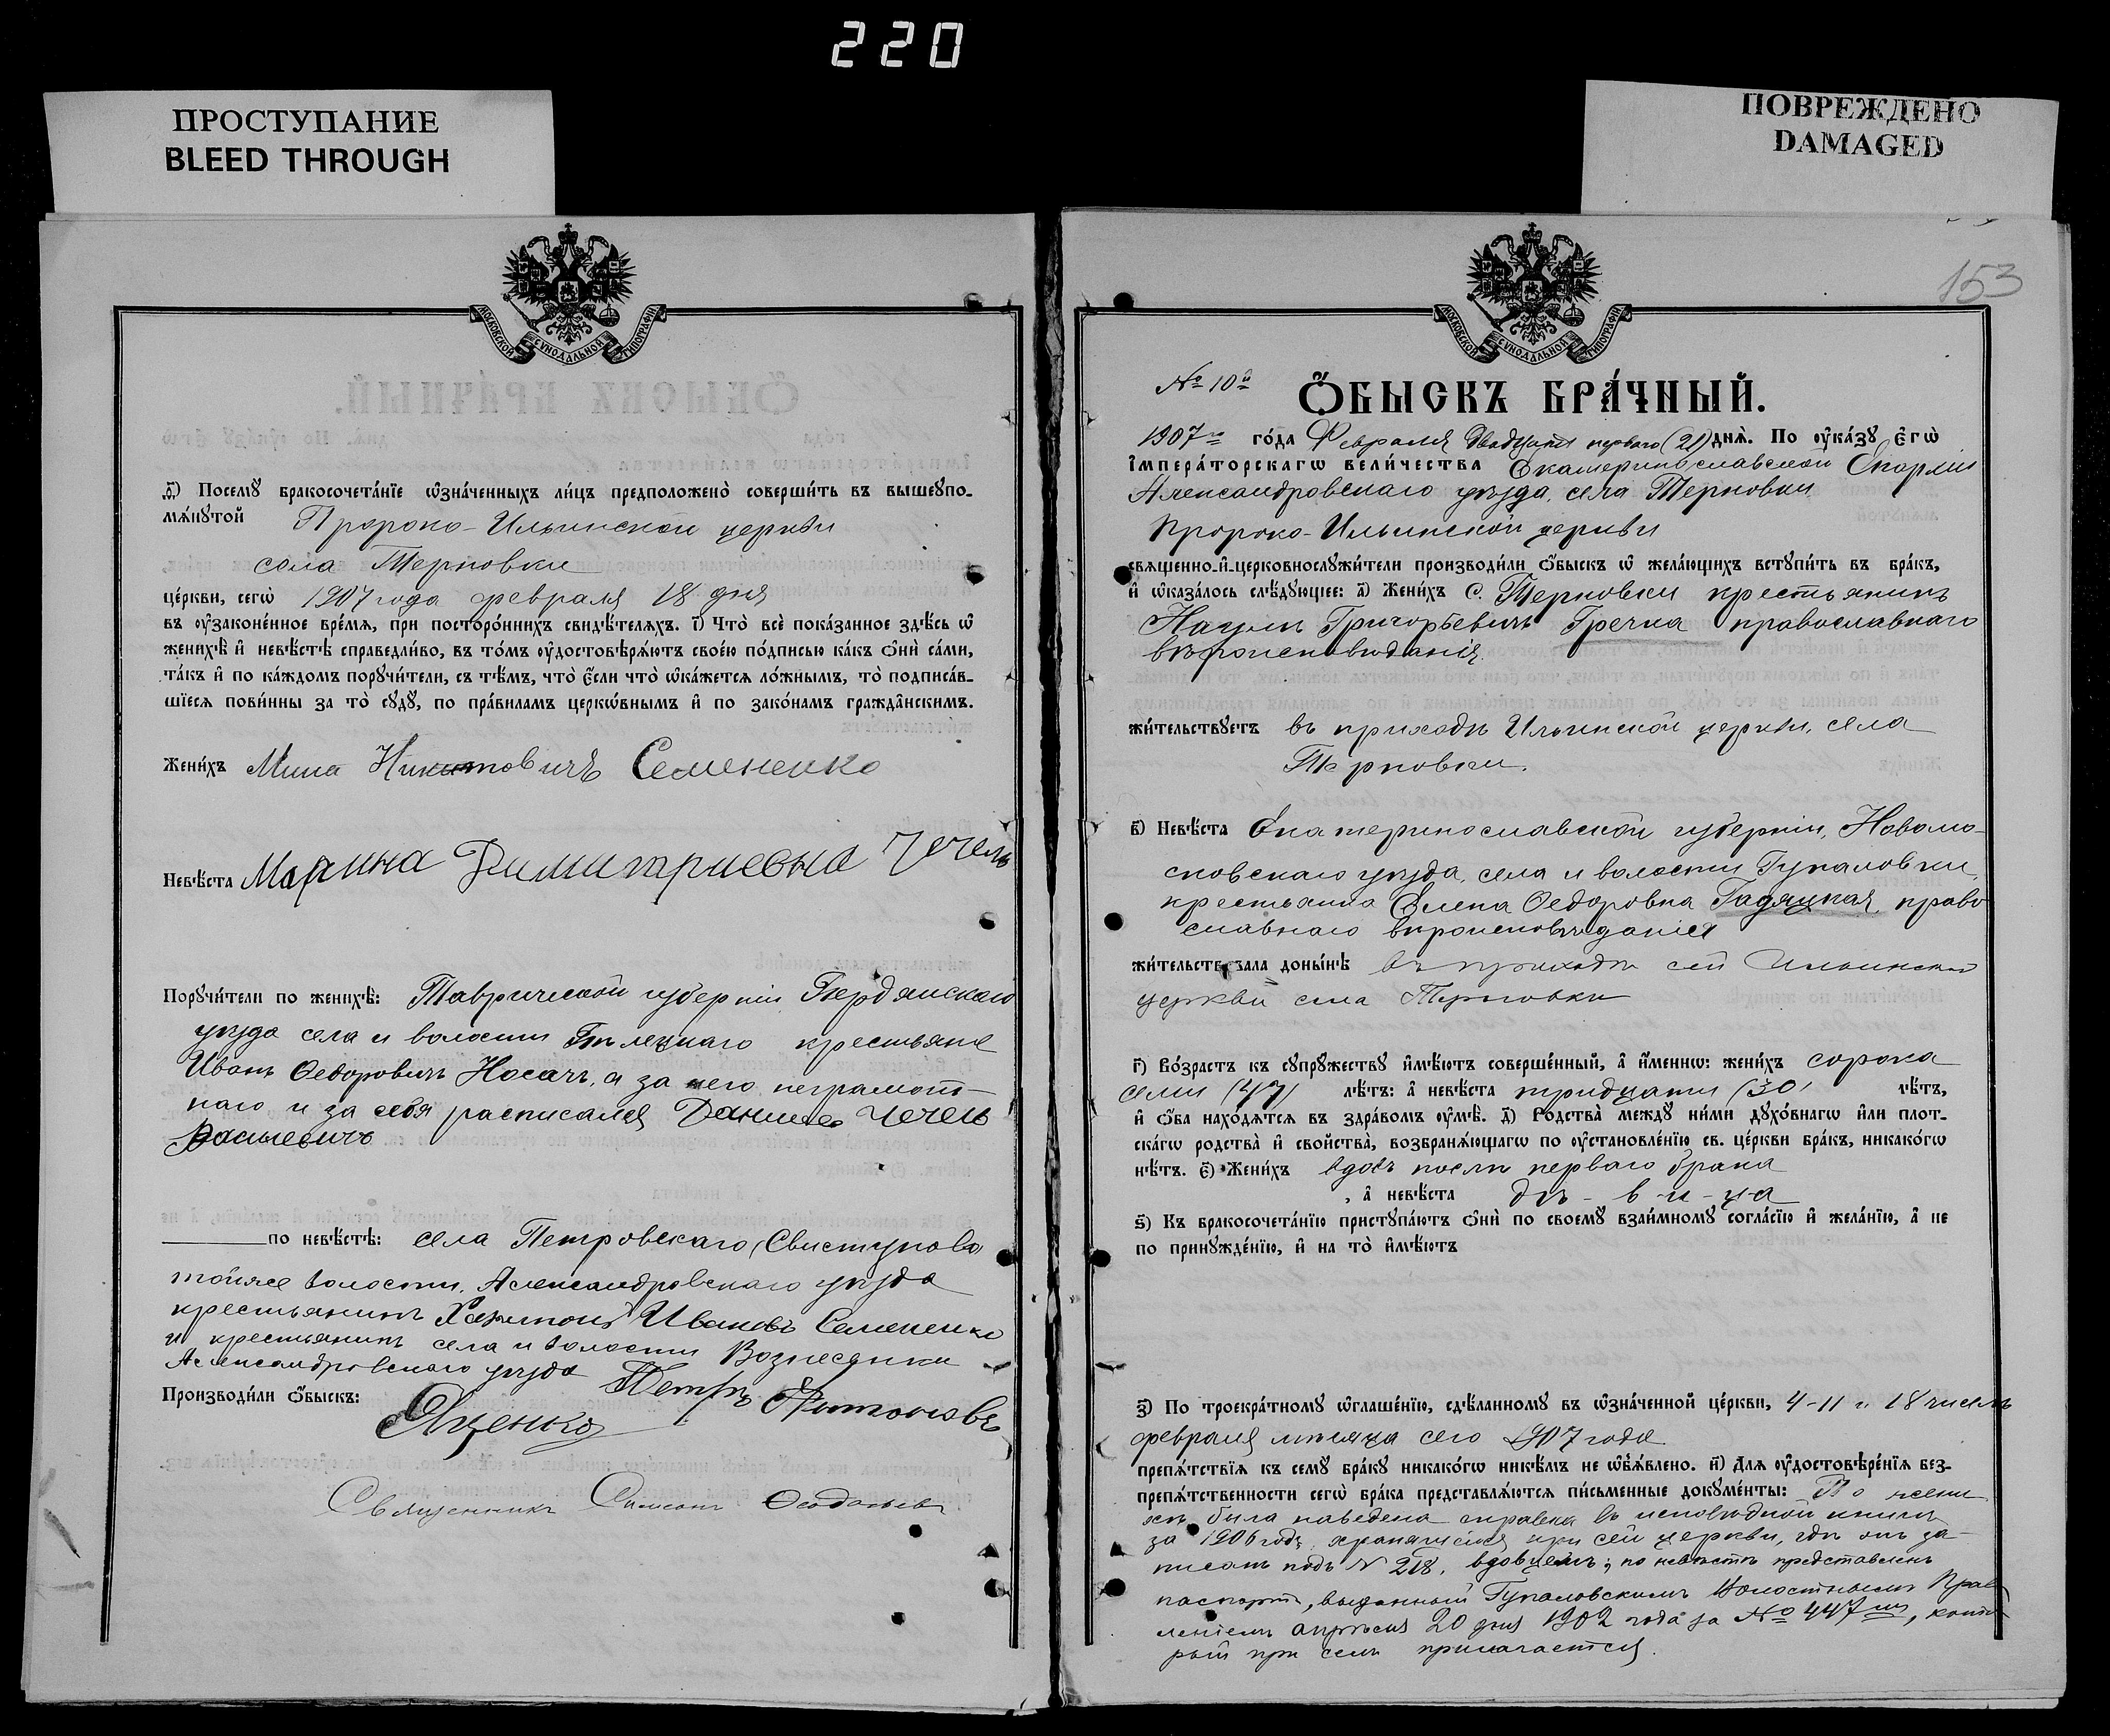 220
ПРОСТУПАНИЕ
BLEED THROUGH
ПОВРЕЖДЕНО
DAMAGED
МОСКОВСКОЙ СѴНОДАЛЬНОЙ ТИПОГРАФІИ
ѳ҃) Посемꙋ бракосочета́нїе ѡ҆зна́ченныхъ ли́цъ предположено̀ соверши́ть въ вышеꙋпо-
мѧ́нꙋтой Пророко-Ильинской церкви
села Терновки
це́ркви, сегѡ̀ 1907 года февраля 18 дня
въ ᲂу҆зако́ненное вре́мѧ, при посторо́ннихъ свидѣ́телѧхъ. і҃) Что̀ всѐ пока́занное здѣ́сь ѡ҆
женихѣ̀ и҆ невѣ́стѣ справедли́во, въ то́мъ ᲂу҆достовѣрѧ́ютъ свое́ю по́дписью ка́къ ѻ҆нѝ са́ми,
та́къ и҆ по ка́ждомъ порꙋчи́тели, съ тѣ́мъ, что̀ є҆́сли что̀ ѡ҆ка́жетсѧ ло́жнымъ, то̀ подписа́в-
шїесѧ пови́нны за то̀ сꙋдꙋ̀, по пра́виламъ церкѡ́внымъ и҆ по зако́намъ гражда̂нскимъ.
Жени́хъ Мина Никитовичъ Семененко
Невѣ́ста Марина Димитриевна Чечель
Порꙋчи́тели по женихѣ̀: Таврической губерніи Бердянскаго
уѣзда села и волости крестьяне
Иванъ Ѳедоровичъ Носачъ, а за него неграмот-
наго и за себя расписался Данило Чечель
Васильевичъ
по невѣ́стѣ: села Петровскаго (Свистунова)
тойже волости, Александровскаго уѣзда
крестьянинъ Харитонъ Ивановъ Семененко
и крестьянинъ села и волости Вознесенки
Александровскаго уѣзда Петръ
Производи́ли ѻ҆́быскъ: Яценко
Священникъ Симеонъ
153
МОСКОВСКОЙ СѴНОДАЛЬНОЙ ТИПОГРАФІИ
№ 10й
Ѻ҆́БЫСКЪ БРА́ЧНЫЙ.
1907го го́да Февраля двадцать перваго (21) днѧ̀. По ᲂу҆ка́зꙋ є҆гѡ̀
і҆мпера́торскагѡ вели́чества Екатеринославской Епархіи
Александровскаго уѣзда, села Терновки
Пророко-Ильинской церкви
свѧщенно-и҆-церковнослꙋжи́тели производи́ли ѻ҆́быскъ ѡ҆ жела́ющихъ встꙋпи́ть въ бра́къ,
и҆ ѡ҆каза́лось слѣ́дꙋющее: а҃) Жени́хъ с. Терновки крестьянинъ
Наумъ Григорьевичъ Гречка православнаго
вѣроисповѣданія.
жи́тельствꙋетъ въ приходѣ Ильинской церкви, села
Терновки.
в҃) Невѣ́ста Екатеринославской губерніи, Новомо-
сковскаго уѣзда, села и волости Гупаловки,
крестьянка Елена Ѳедоровна Гадяцкая, право
славнаго вѣроисповѣданія
жи́тельствовала доны́нѣ въ приходѣ сей Ильинской
церкви села Терновки
г҃) Во́зрастъ къ сꙋпрꙋ́жествꙋ и҆мѣ́ютъ соверше́нный, а҆ и҆́меннѡ: жени́хъ сорока
семи (47) лѣ́тъ: а҆ невѣ́ста тридцати (30) лѣ́тъ,
и҆ ѻ҆́ба нахо́дѧтсѧ въ здра́вомъ ᲂу҆мѣ̀. д҃) Родства̀ междꙋ̀ ни́ми дꙋхо́внагѡ и҆лѝ плот-
ска́гѡ родства̀ и҆ сво́йства̀, возбранѧ́ющагѡ по ᲂу҆становле́нїю св. це́ркви бра́къ, никако́гѡ
нѣ́тъ. є҃) Жени́хъ вдовъ послѣ перваго брака
, а҆ невѣ́ста дѣ-в-и-ца
ѕ҃) Къ бракосочета́нїю пристꙋпа́ютъ ѻ҆нѝ по своемꙋ̀ взаи́мномꙋ согла́сїю и҆ жела́нїю, а҆ не
по принꙋжде́нїю, и҆ на то̀ и҆мѣ́ютъ
з҃) По троекра́тномꙋ ѡ҆глаше́нїю, сдѣ́ланномꙋ въ ѡ҆зна́ченной це́ркви, 4-11 и 18 числъ
февраля мѣсяца сего 1907 года
препѧ́тствїѧ къ семꙋ̀ бра́кꙋ никако́гѡ никѣ́мъ не ѡ҆б̾ѧ́влено. и҃) Длѧ ᲂу҆достовѣре́нїѧ без-
препѧ́тственности сегѡ̀ бра́ка представлѧ́ютсѧ пи́сьменные докꙋме́нты: По жени
хѣ была наведена справка въ исповѣдной книгѣ
за 1906 годъ, хранящейся при сей церкви, гдѣ онъ за-
писанъ подъ № 218, вдовцемъ; по невѣстѣ представленъ
паспортъ, выданный Гупаловскимъ Волостнымъ Прав
леніемъ апрѣля 20 дня 1902 года за № 447мъ, кото-
рый при семъ прилагается.